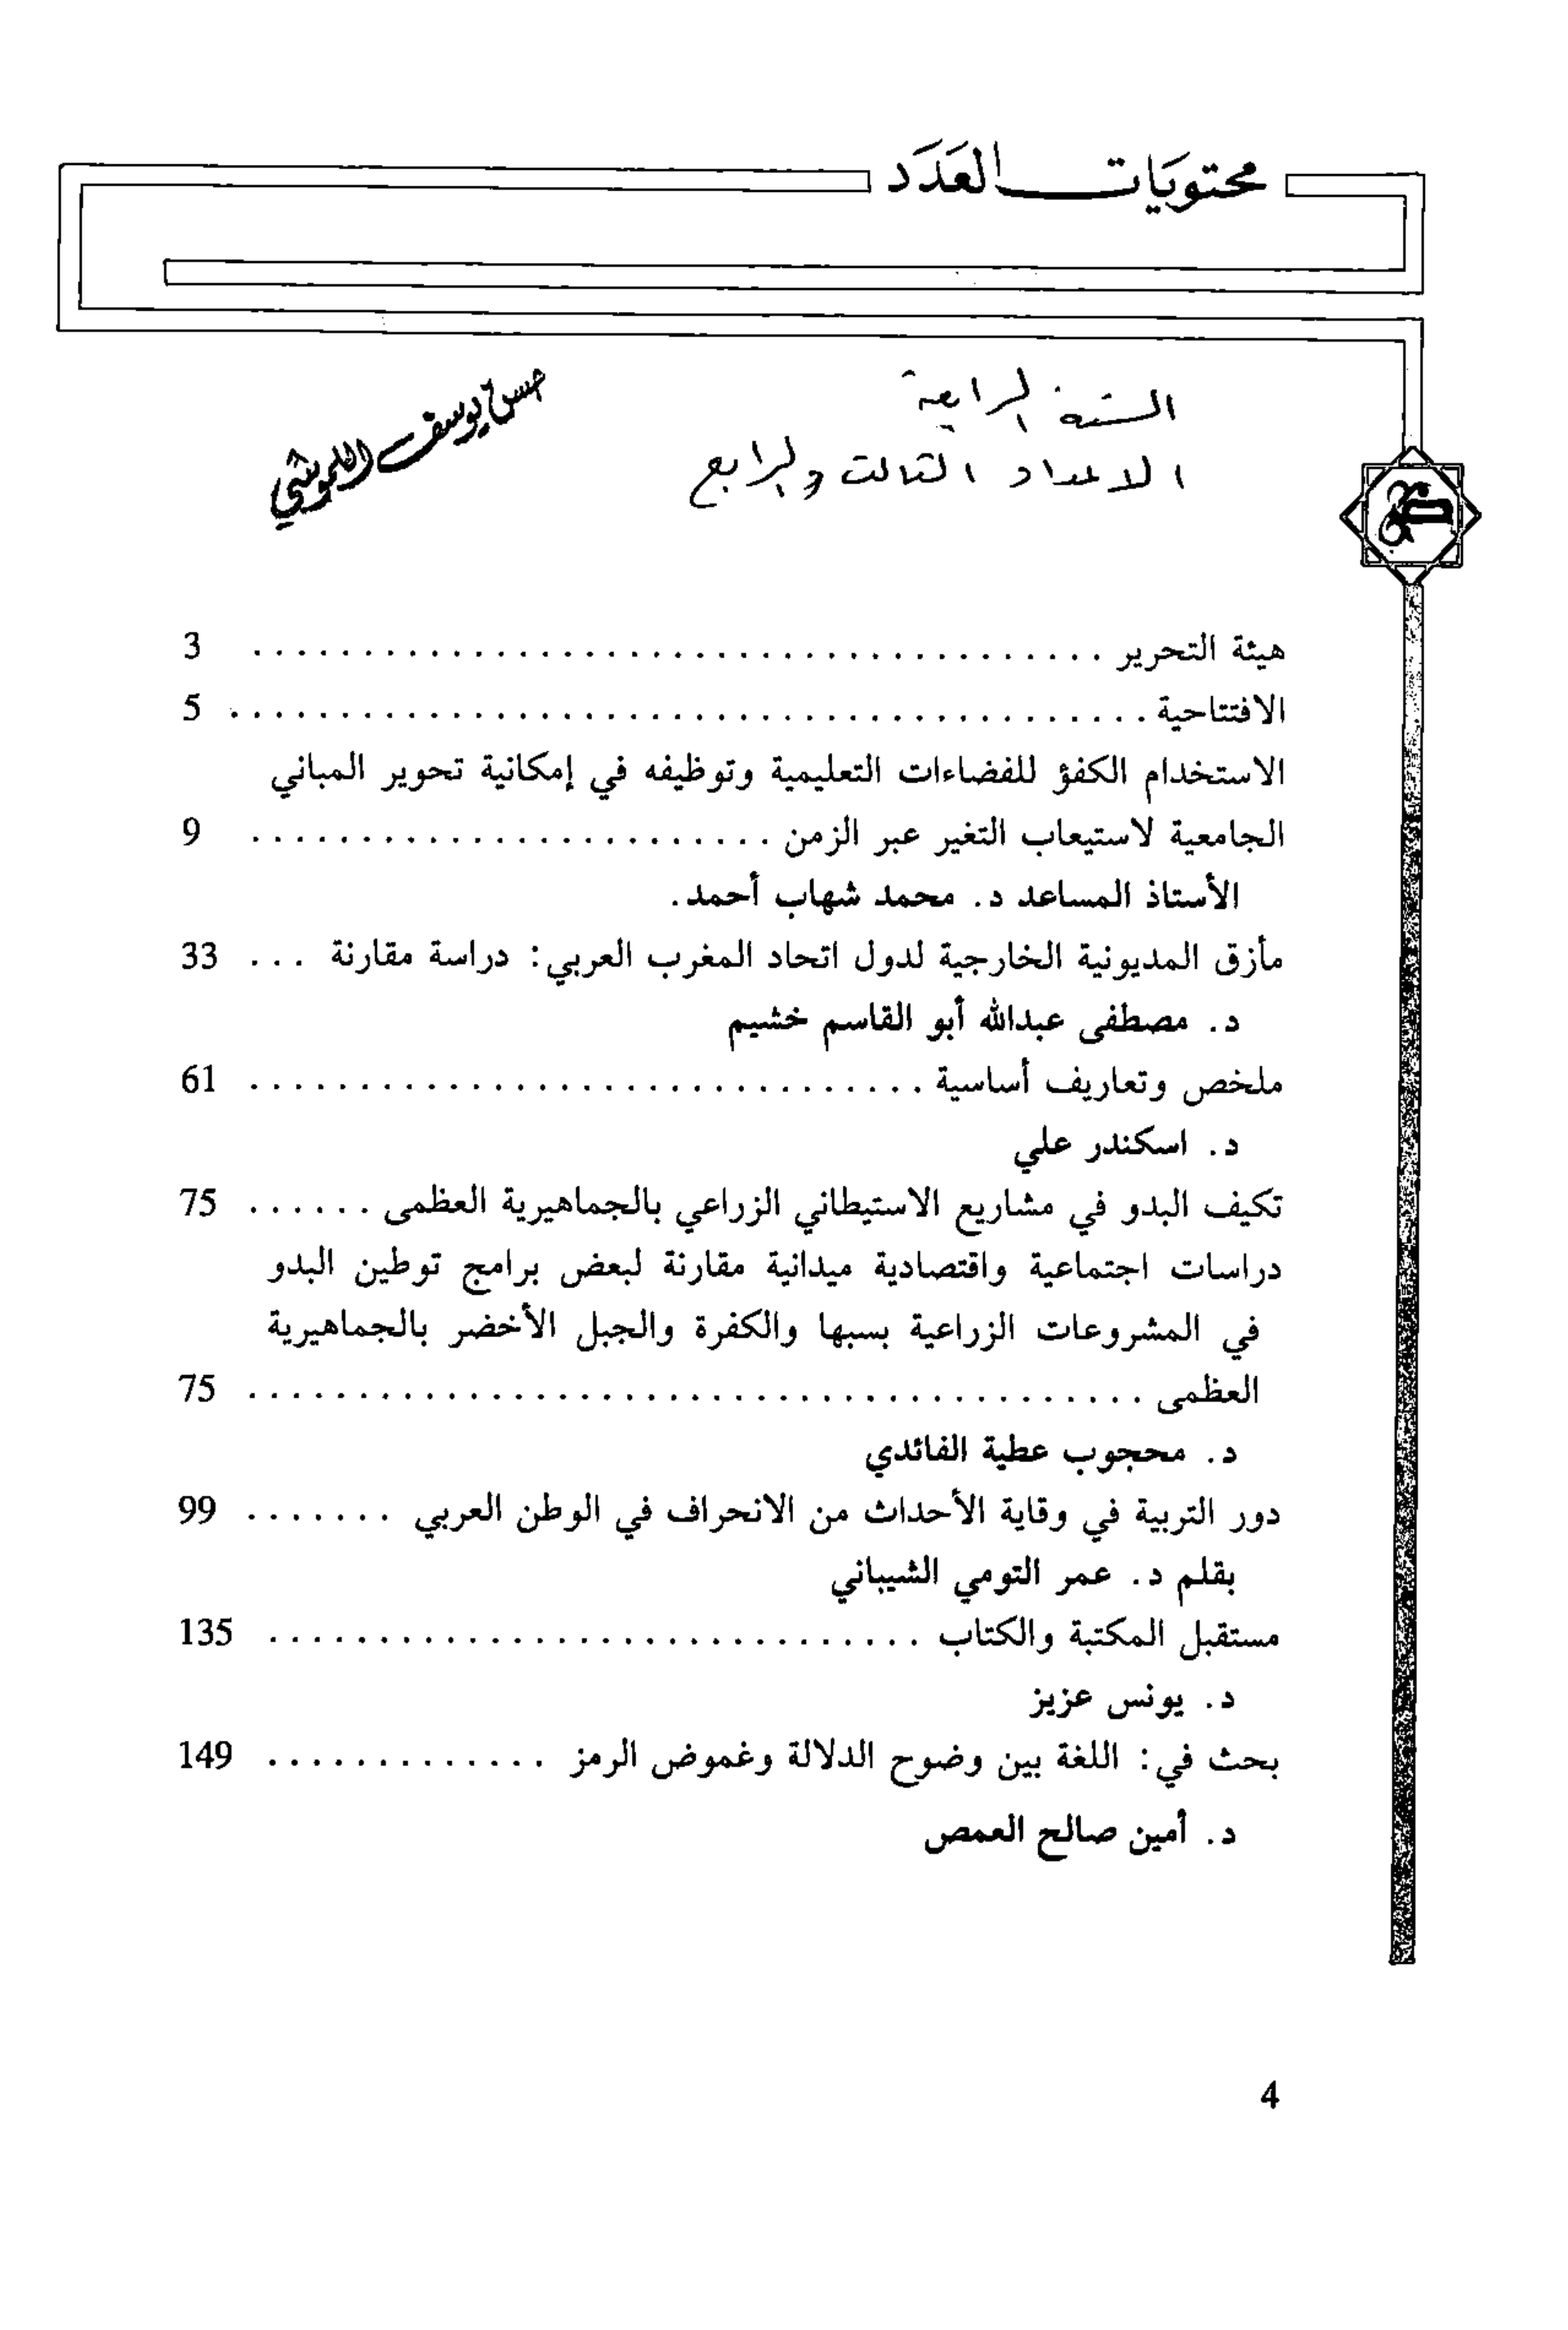 محتويات العدد
السنة الرابعة
الاعداد الثالث والرابع
حسن يوسف
هيئة التحرير ....................................... 3
الافتتاحية .......................................... 5
الاستخدام الكفؤ للفضاءات التعليمية وتوظيفه في إمكانية تحوير المباني
الجامعية لاستيعاب التغير عبر الزمن ........................ 9
الأستاذ المساعد د. محمد شهاب أحمد.
مأزق المديونية الخارجية لدول اتحاد المغرب العربي: دراسة مقارنة ... 33
د. مصطفى عبدالله أبو القاسم خشيم
ملخص وتعاريف أساسية ............................... 61
د. اسكندر علي
تكيف البدو في مشاريع الاستيطاني الزراعي بالجماهيرية العظمى ...... 75
دراسات اجتماعية واقتصادية ميدانية مقارنة لبعض برامج توطين البدو
في المشروعات الزراعية بسبها والكفرة والجبل الأخضر بالجماهيرية
العظمى ......................................... 75
د. محجوب عطية الفائدي
دور التربية في وقاية الأحداث من الانحراف في الوطن العربي ....... 99
بقلم د. عمر التومي الشيباني
مستقبل المكتبة والكتاب .............................. 135
د. يونس عزيز
بحث في: اللغة بين وضوح الدلالة وغموض الرمز ............. 149
د. أمين صالح العمص
4